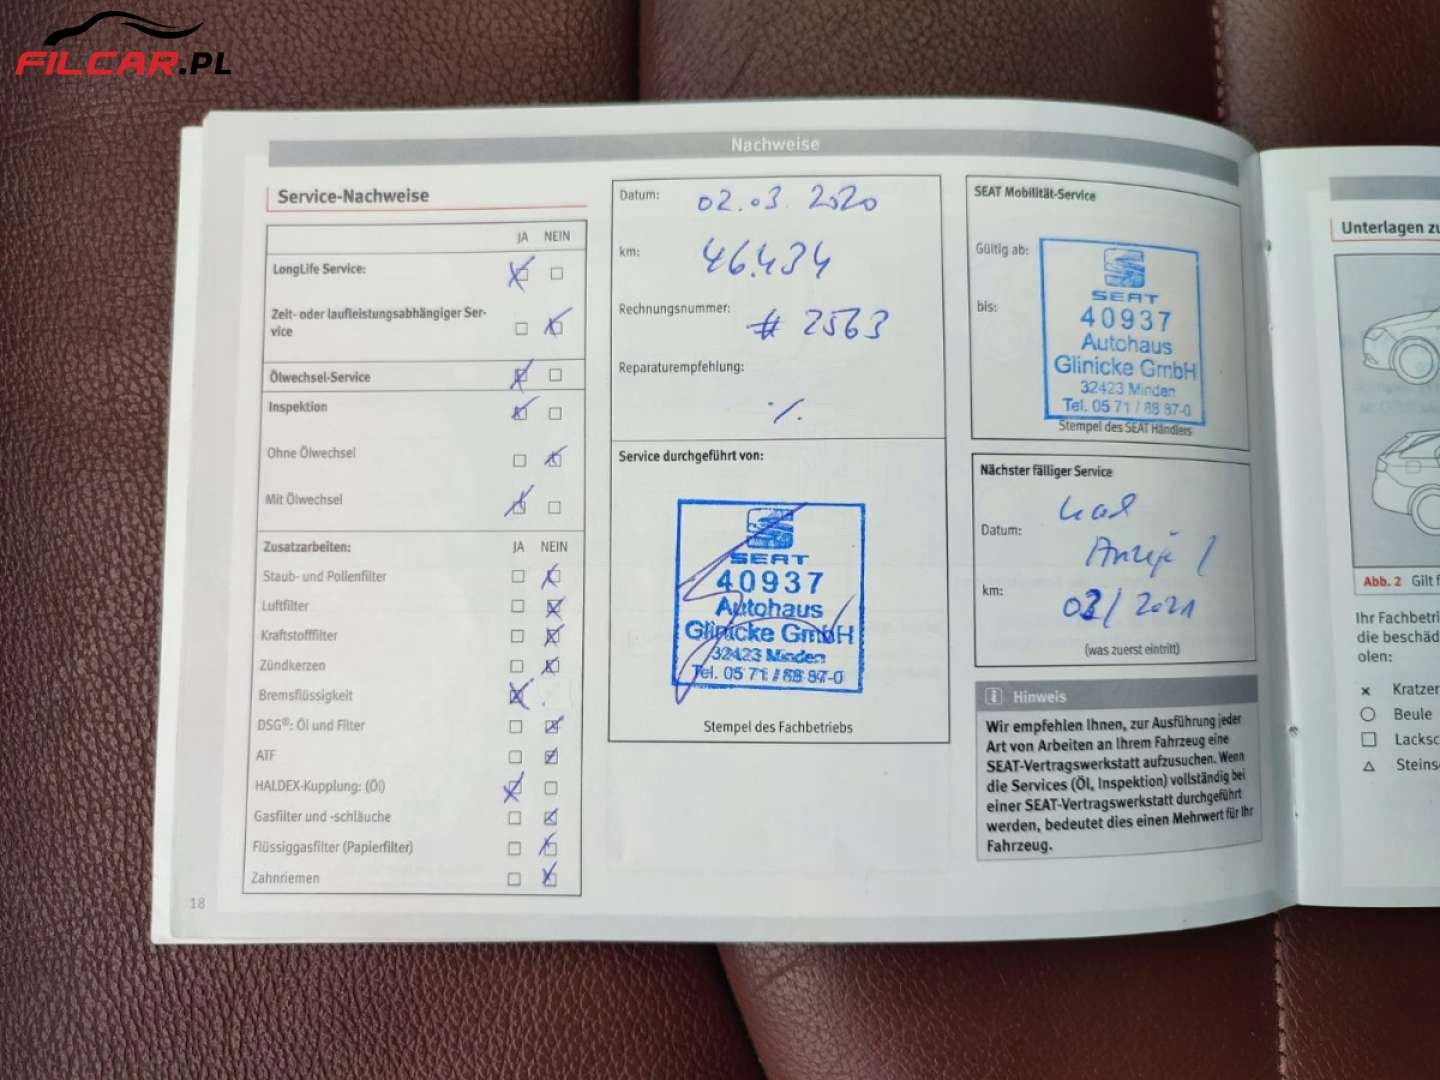 FILCAR.PL
Nachweise
Service-Nachweise
JA NEIN
LongLife Service:
Zeit- oder laufleistungsabhängiger Ser-
vice
Ölwechsel-Service
Inspektion
Ohne Ölwechsel
Mit Ölwechsel
Zusatzarbeiten: JA NEIN
Staub- und Pollenfilter
Luftfilter
Kraftstofffilter
Zündkerzen
Bremsflüssigkeit
DSG®: Öl und Filter
ATF
HALDEX-Kupplung: (Öl)
Gasfilter und -schläuche
Flüssiggasfilter (Papierfilter)
Zahnriemen
18
Datum: 02.03.2020
km: 46.434
Rechnungsnummer: # 2563
Reparaturempfehlung:
./.
Service durchgeführt von:
SEAT
40937
Autohaus
Glinicke GmbH
32423 Minden
Tel. 05 71 / 88 87-0
Stempel des Fachbetriebs
SEAT Mobilität-Service
Gültig ab:
bis:
SEAT
40937
Autohaus
Glinicke GmbH
32423 Minden
Tel. 05 71 / 88 87-0
Stempel des SEAT Händlers
Nächster fälliger Service
Datum:
km: 03/2021
(was zuerst eintritt)
i Hinweis
Wir empfehlen Ihnen, zur Ausführung jeder
Art von Arbeiten an Ihrem Fahrzeug eine
SEAT-Vertragswerkstatt aufzusuchen. Wenn
die Services (Öl, Inspektion) vollständig bei
einer SEAT-Vertragswerkstatt durchgeführt
werden, bedeutet dies einen Mehrwert für Ihr
Fahrzeug.
Unterlagen zu
Abb. 2 Gilt f
Ihr Fachbetri
die beschäd
olen:
Kratzer
Beule
Lacksc
Steins